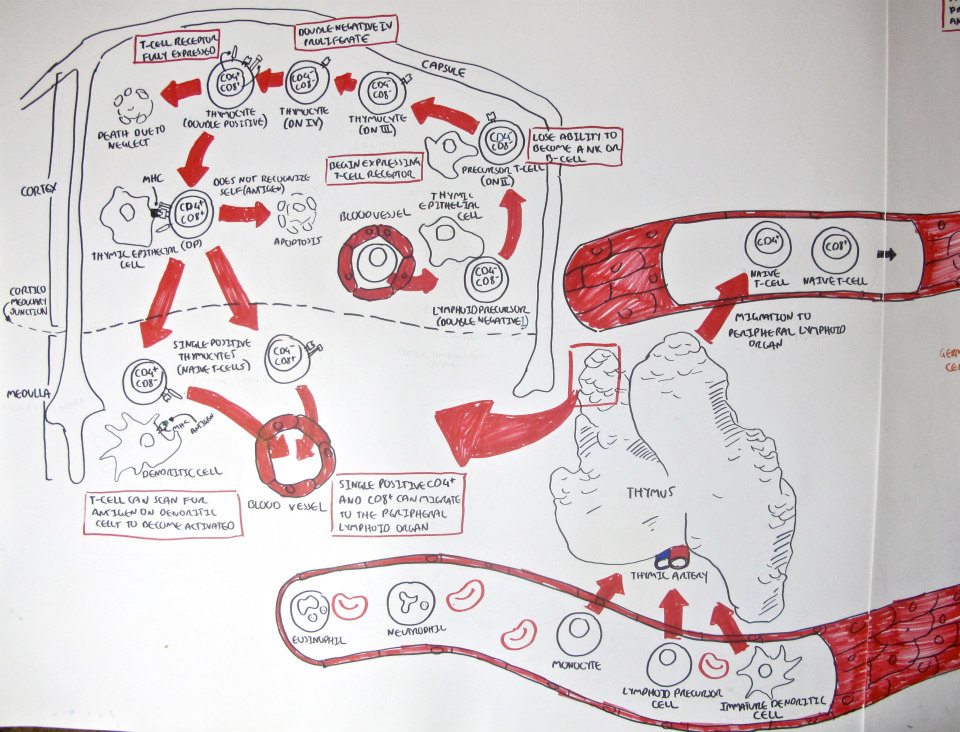 T-CELL RECEPTOR
FULLY EXPRESSED
DOUBLE NEGATIVE IV
PROLIFERATE
CAPSULE
CD4+
CD8+
THYMOCYTE
(DOUBLE POSITIVE)
CD4-
CD8-
THYMOCYTE
(DN IV)
CD4-
CD8-
THYMOCYTE
(DN III)
DEATH DUE TO
NEGLECT
CD4-
CD8-
PRECURSOR T-CELL
(DN II)
LOSE ABILITY TO
BECOME A NK OR
B-CELL
BEGIN EXPRESSING
T-CELL RECEPTOR
CORTEX
MHC
DOES NOT RECOGNIZE
SELF (ANTIGEN)
CD4+
CD8+
(DP)
THYMIC EPITHELIAL
CELL
APOPTOSIS
BLOOD VESSEL
THYMIC
EPITHELIAL
CELL
CD4-
CD8-
LYMPHOID PRECURSOR
(DOUBLE NEGATIVE I)
CORTICO
MEDULLARY
JUNCTION
MEDULLA
SINGLE POSITIVE
THYMOCYTES
(NAIVE T-CELLS)
CD4+
CD8-
CD4-
CD8+
MHC
ANTIGEN
DENDRITIC CELL
BLOOD VESSEL
T-CELL CAN SCAN FOR
ANTIGEN ON DENDRITIC
CELL TO BECOME ACTIVATED
SINGLE POSITIVE CD4+
AND CD8+ CAN MIGRATE
TO THE PERIPHERAL
LYMPHOID ORGAN
CD4+
NAIVE
T-CELL
CD8+
NAIVE T-CELL
MIGRATION TO
PERIPHERAL LYMPHOID
ORGAN
THYMUS
THYMIC ARTERY
EUSINOPHIL
NEUTROPHIL
MONOCYTE
LYMPHOID PRECURSOR
CELL
IMMATURE DENDRITIC
CELL